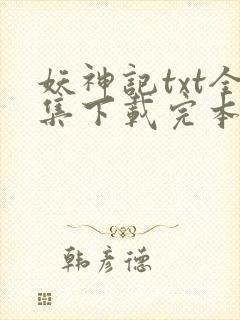 妖神記txt全
集下載完本
韩彦德